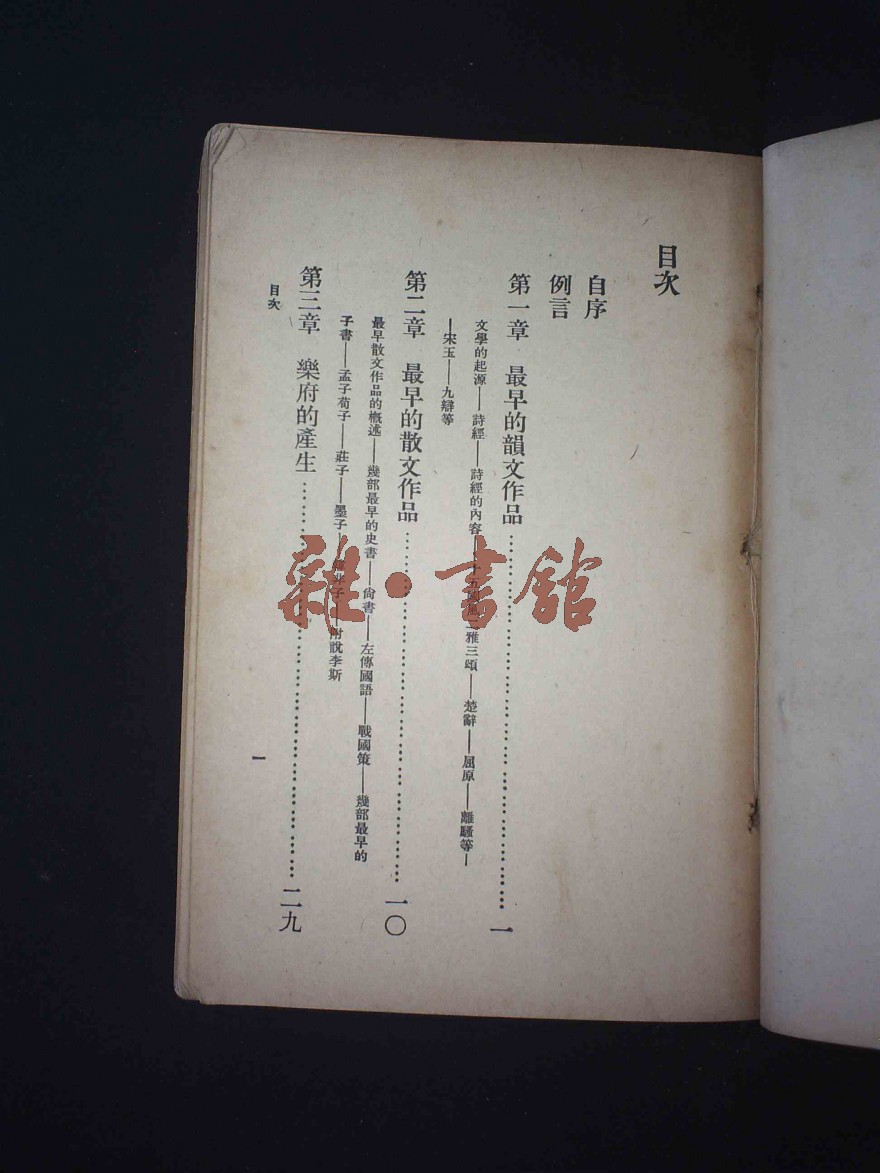 目次
自序
例言
第一章 最早的韻文作品……一
文學的起源——詩經——詩經的內容——十五國風二雅三頌——楚辭——屈原——離騷等—
—宋玉——九辯等
第二章 最早的散文作品……一〇
最早散文作品的概述——幾部最早的史書——尙書——左傳國語——戰國策——幾部最早的
子書——孟子荀子——莊子——墨子——韓非子——附說李斯
第三章 樂府的產生……二九
目次
一
雜·書館